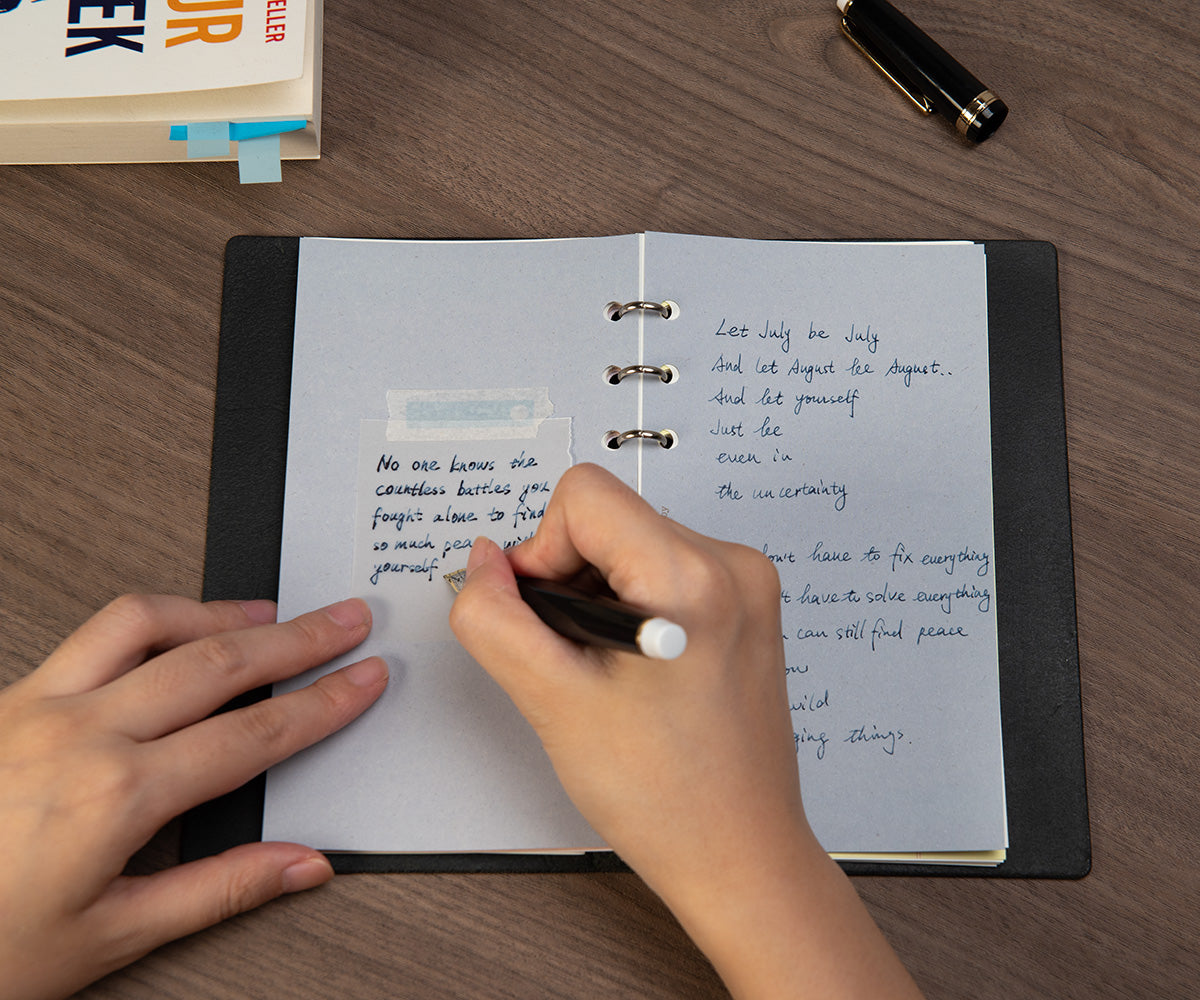 EEK
UR
ELLER
No one knows the
countless battles you
fought alone to find
so much
yourself
Let July be July
And let August be August..
And let yourself
Just be
even in
the uncertainty
have to fix everything
have to solve everything
can still find peace
wild
things.